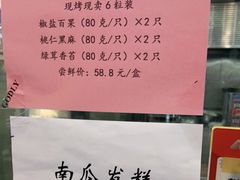 现烤现卖6粒装
椒盐百果（80克/只）×2只
桃仁黑麻（80克/只）×2只
绿茸香菇（80克/只）×2只
尝鲜价：58.8元/盒
GODLY
南瓜发糕